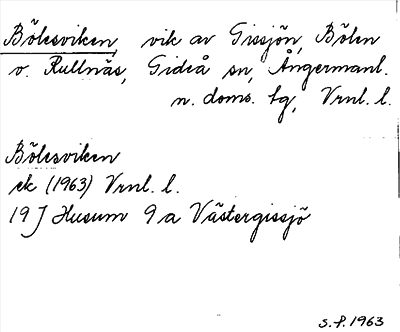 Bölesviken, vik av Gissjön, Bölen
v. Rullnäs, Gideå sn, Ångermanl.
n. doms. tg, Vrnl. l.
Bölesviken
ek (1963) Vrnl. l.
19 J Husum 9 a Västergissjö
S.F. 1963